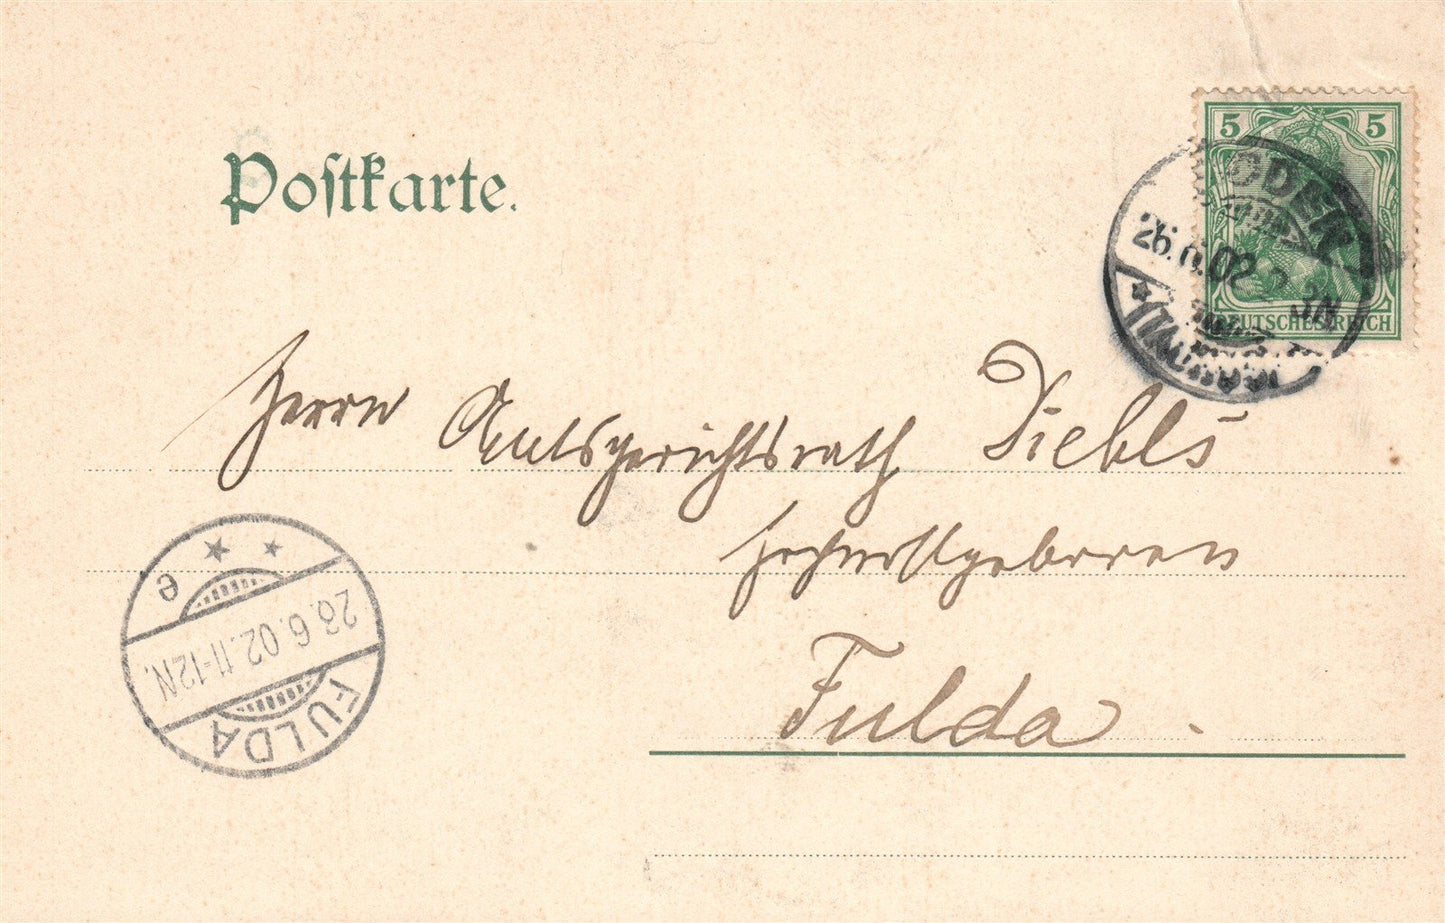 Postkarte.
5 5
DEUTSCHES REICH
SODEN
26.6.02 2-3N
* (TAUNUS)
Herrn Amtsgerichtsrath Diehls
Hochwohlgeboren
Fulda.
FULDA
26.6.02.11-12N.
* * e